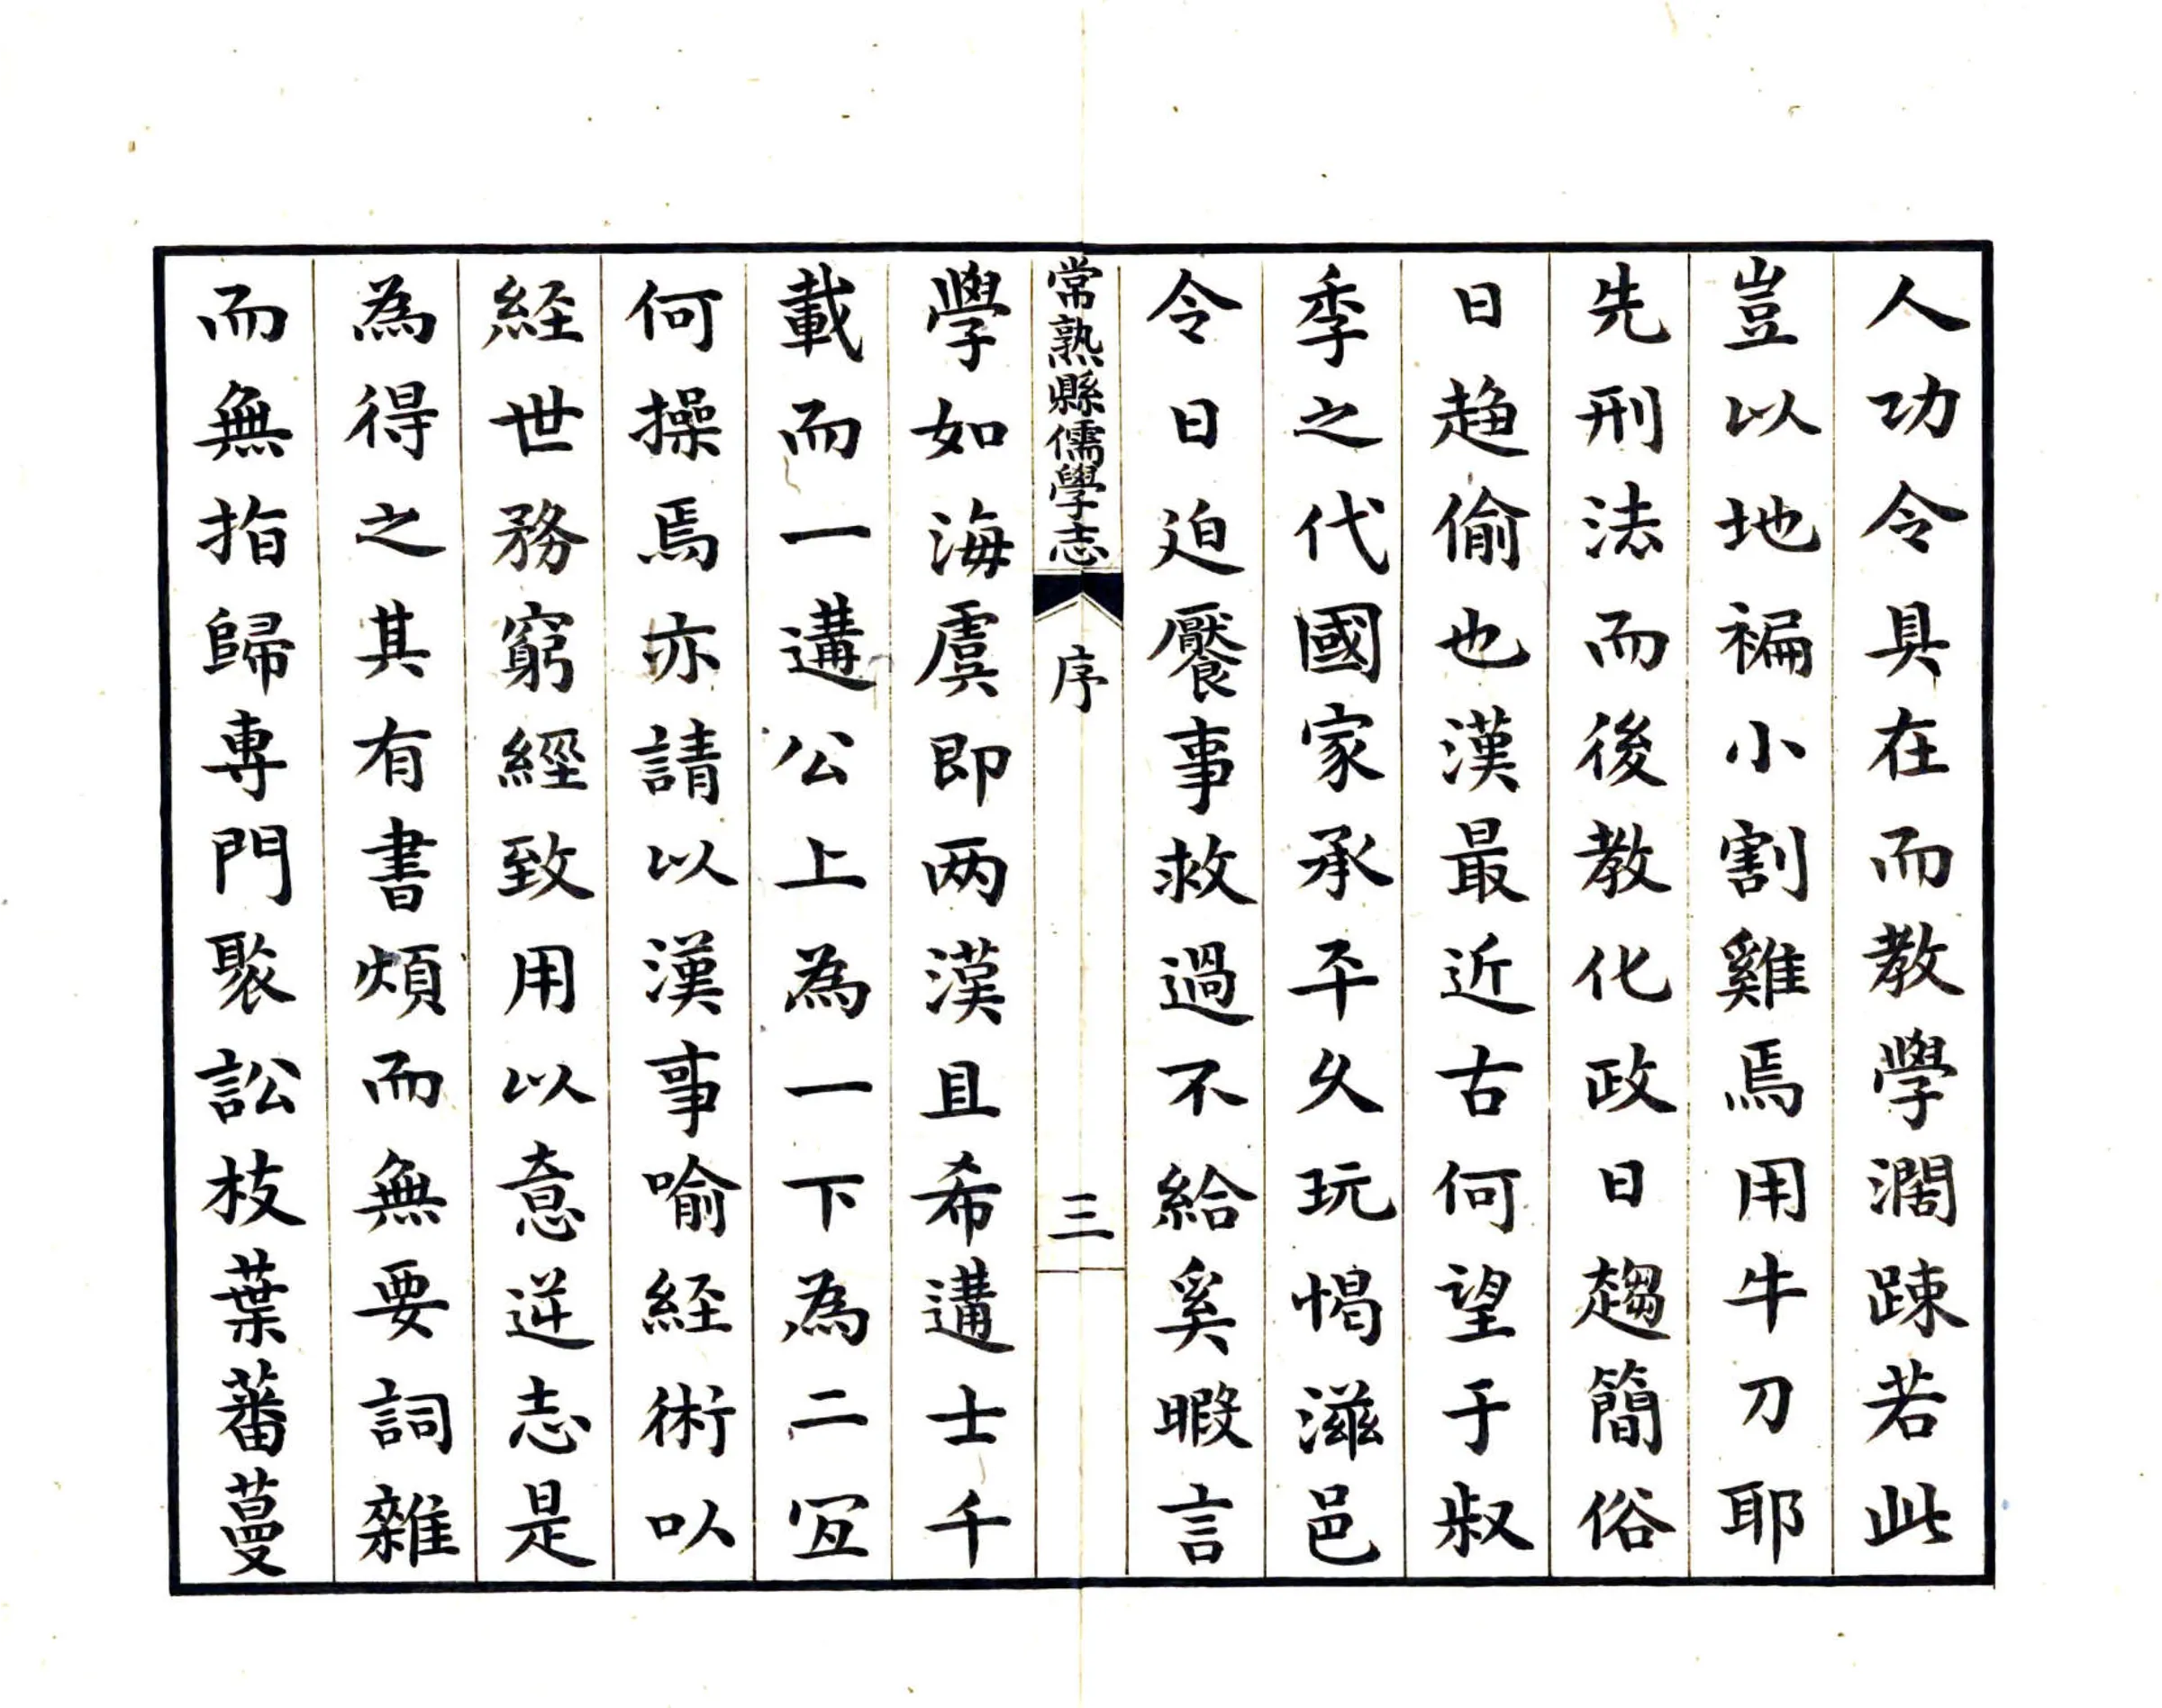 人功令具在而教學濶踈若此
豈以地褊小割雞焉用牛刀耶
先刑法而後教化政日趨簡俗
日趋偷也漢最近古何望于叔
季之代國家承平久玩愒滋邑
令日迫饜事救過不給奚暇言
常熟縣儒學志
序
三
學如海虞即两漢且希遘士千
載而一遘公上為一下為二冝
何操焉亦請以漢事喻経術以
経世務窮經致用以意逆志是
為得之其有書煩而無要詞雜
而無指歸専門聚訟枝葉蕃蔓